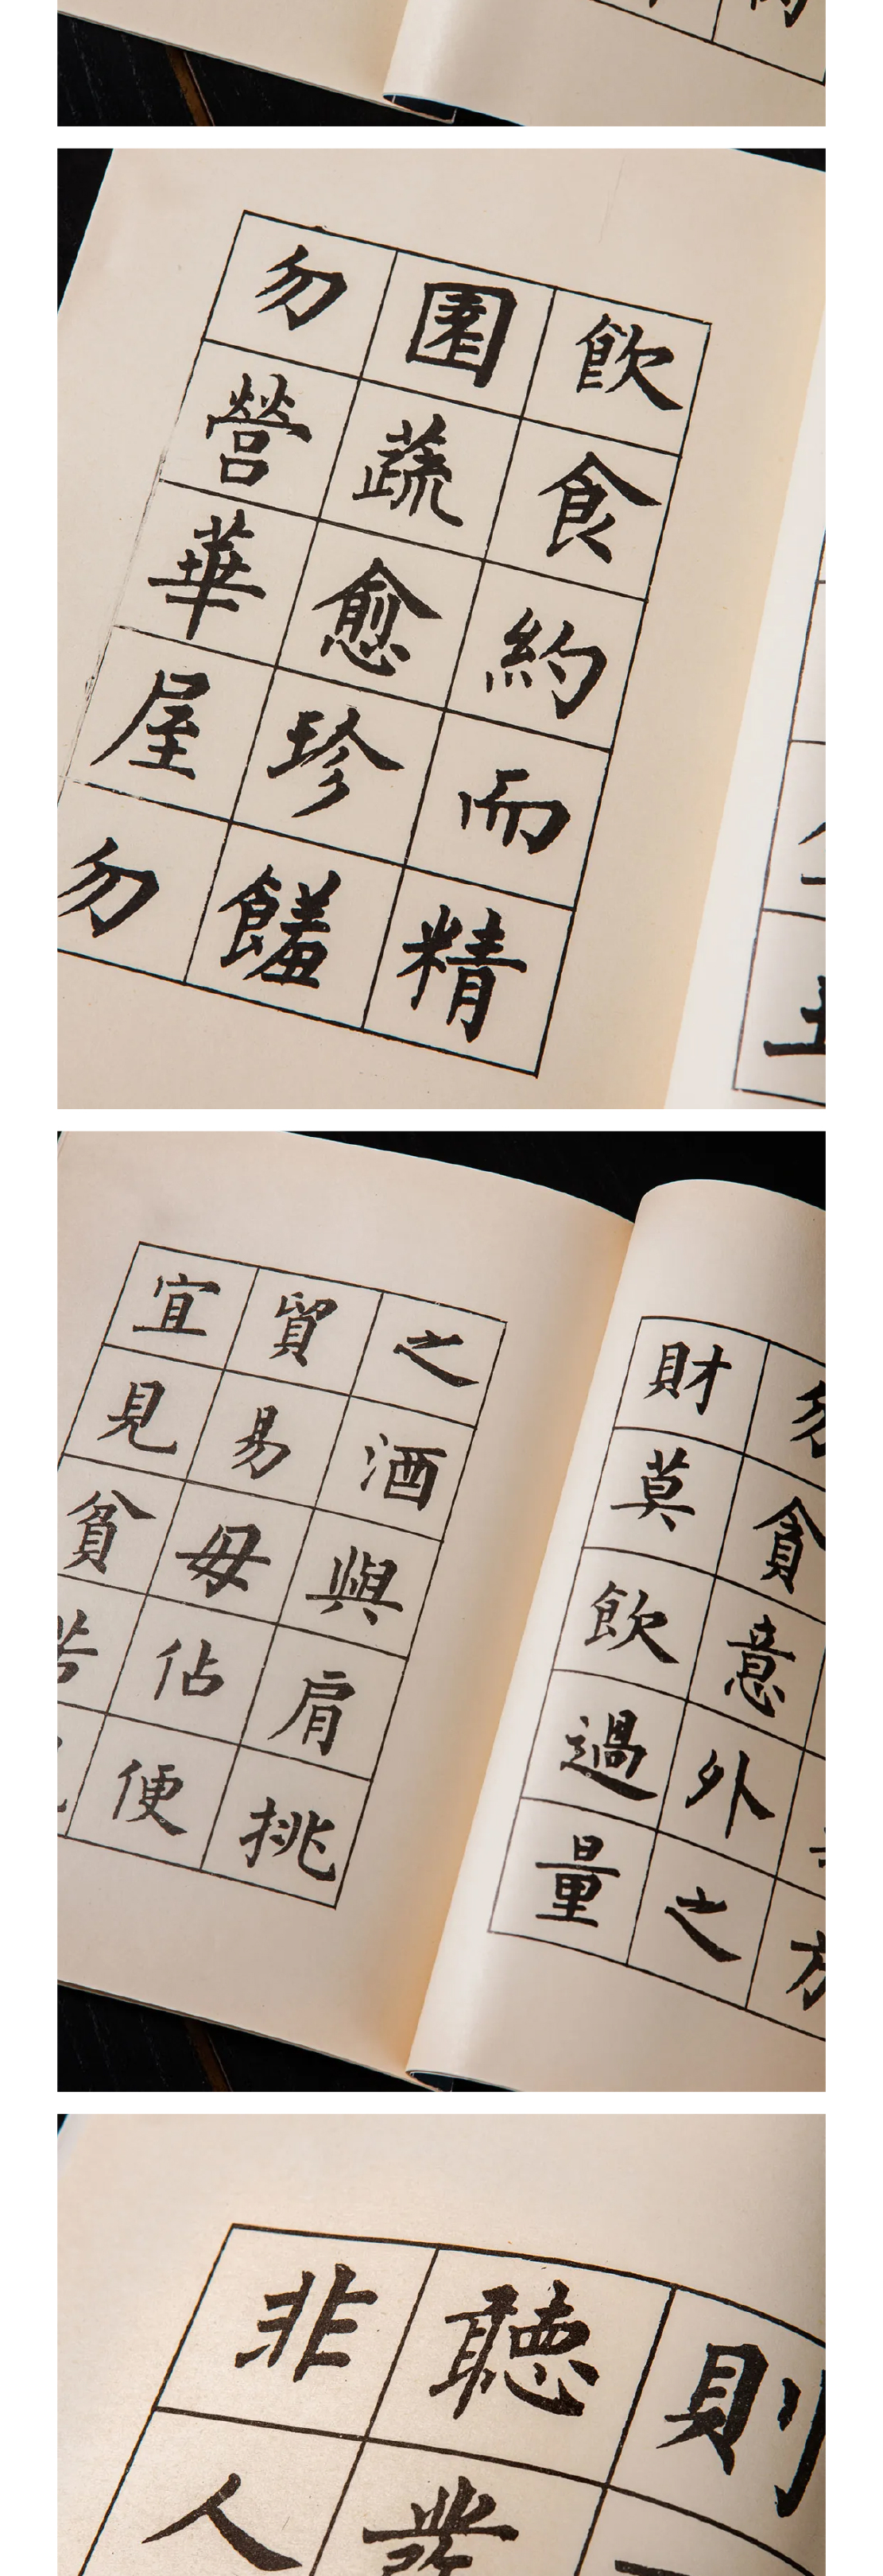 飲食約而精
園蔬愈珍饈
勿營華屋勿
勿貪意外之
財莫飲過量
之酒與肩挑
貿易毋佔便
宜見貧苦
則
聽發
非人